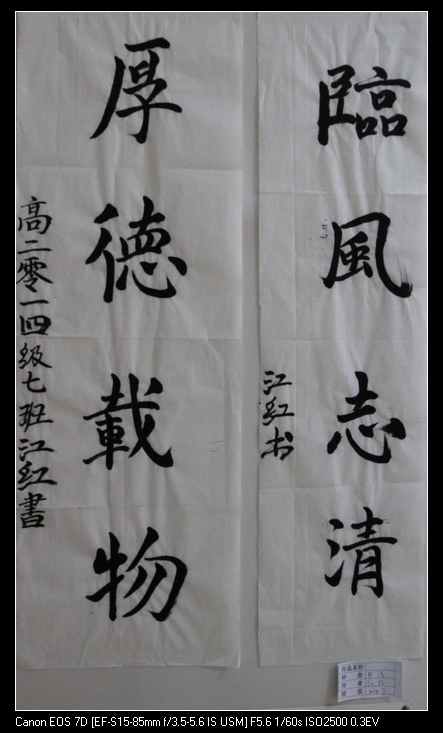 臨風志清
江红书
厚德載物
高二零一四级七班江红書
作品名称
作者
班级
Canon EOS 7D [EF-S15-85mm f/3.5-5.6 IS USM] F5.6 1/60s ISO2500 0.3EV